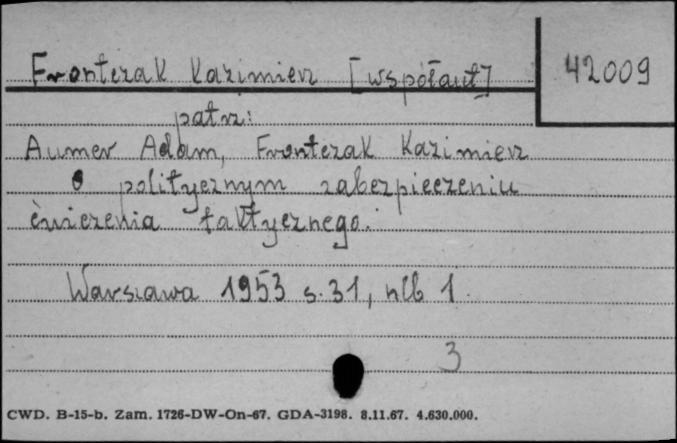 Frontczak Kazimierz [współaut] 42009
patrz:
Aumer Adam, Frontczak Kazimierz
O politycznym zabezpieczeniu
ćwiczenia taktycznego.
Warszawa 1953 s. 31, nlb 1.
3
CWD. B-15-b. Zam. 1726-DW-On-67. GDA-3198. 8.11.67. 4.630.000.